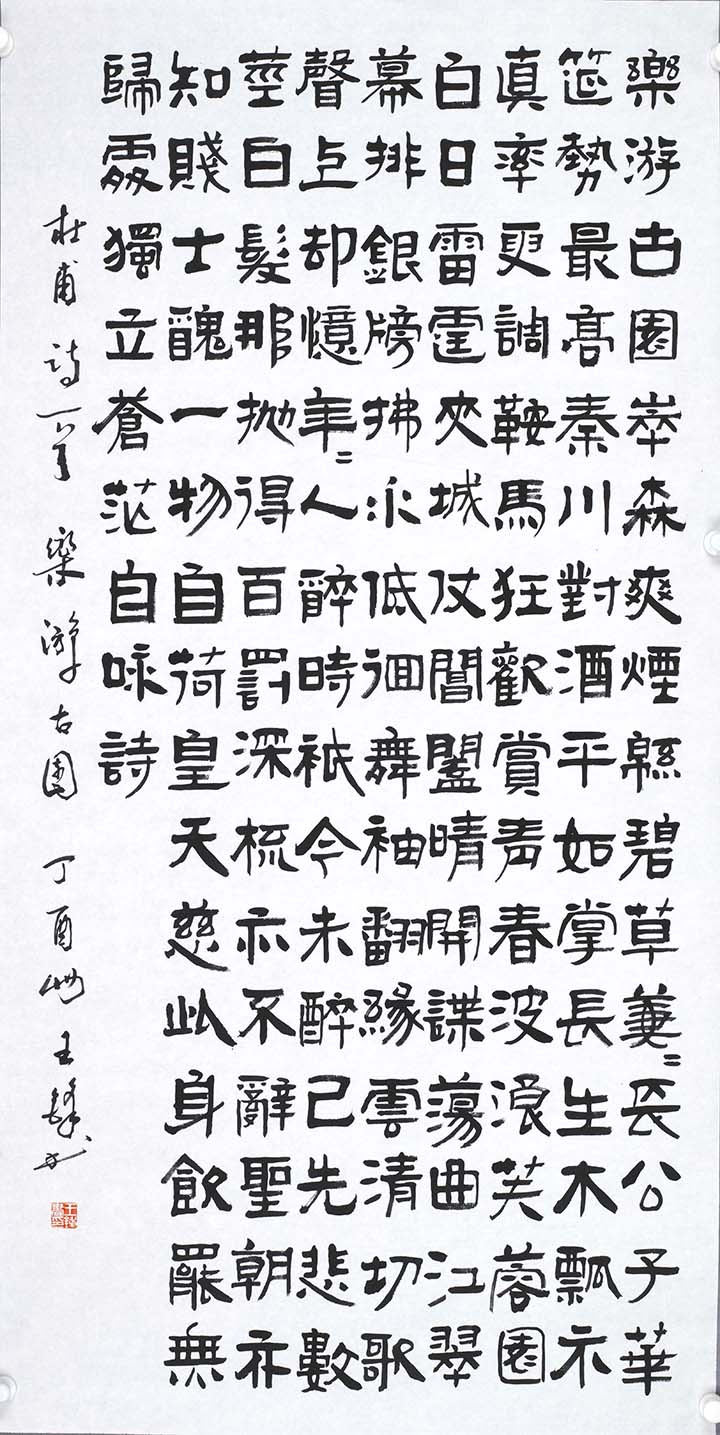 樂游古園崒森爽煙緜碧草萋〻長公子華
筵勢最高秦川對酒平如掌長生木瓢示
真率更調鞍馬狂歡賞青春波浪芙蓉園
白日雷霆夾城仗閶闔晴開諜蕩曲江翠
幕排銀牓拂水低徊舞袖翻緣雲清切歌
聲上却憶年〻人醉時衹今未醉已先悲數
莖白髮那拋得百罰深梳亦不辭聖朝亦
知賤士醜一物自荷皇天慈此身飲罷無
歸處獨立蒼茫自咏詩
杜甫詩一首 樂游古園 丁酉 王鋒書